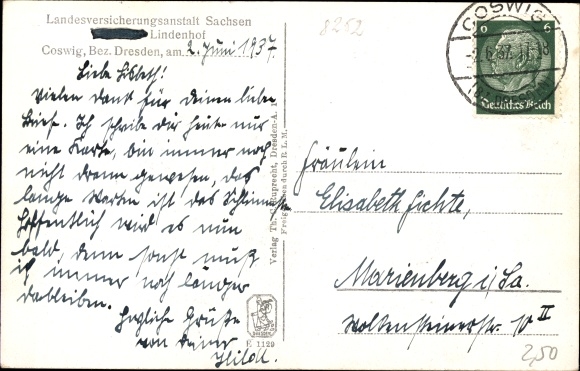 Landesversicherungsanstalt Sachsen
Lindenhof
Coswig, Bez. Dresden, am 2. Juni 1937.
Liebe Lisbeth!
Vielen Dank für Deinen lieben
Brief. Ich schreibe dir heute nur
eine Karte, bin immer noch
nicht dran gewesen, das
lange Warten ist das Schlimmste.
Hoffentlich wird es nun
bald, denn sonst muß
ich immer noch länger
dableiben.
Herzliche Grüße
von Deiner
Hilde.
Verlag Th. Ruprecht, Dresden-A.
Freigegeben durch R. L. M.
E 1129
8252
COSWIG
6
Deutsches Reich
Fräulein
Elisabeth Fichte,
Marienberg i/Sa.
Wolkensteinerstr. II
2,50